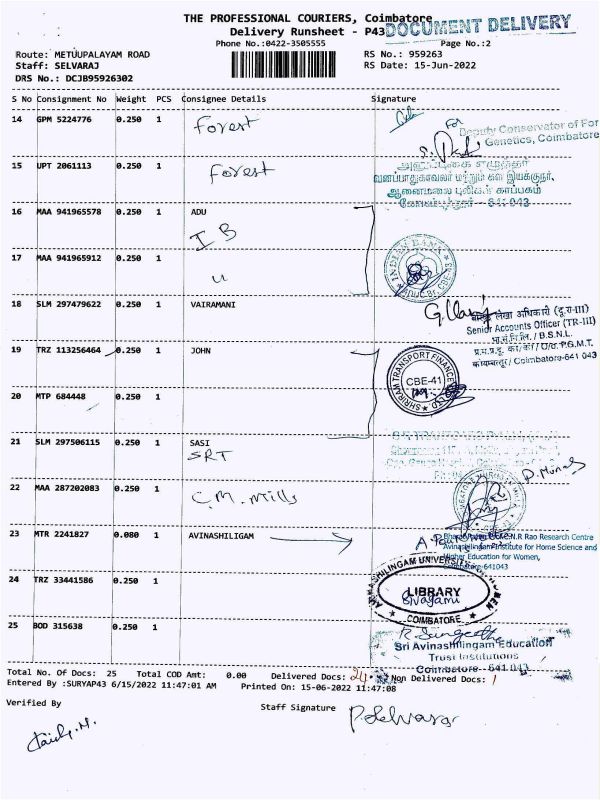 THE PROFESSIONAL COURIERS, Coimbatore
DOCUMENT DELIVERY
Delivery Runsheet - P43
Phone No.:0422-3505555
Page No.:2
Route: METUUPALAYAM ROAD
RS No.: 959263
Staff: SELVARAJ
RS Date: 15-Jun-2022
DRS No.: DCJB95926302
S No Consignment No Weight PCS Consignee Details Signature
14 GPM 5224776 0.250 1 Forest
For
Deputy Conservator of For
Genetics, Coimbatore
15 UPT 2061113 0.250 1 Forest
வனப்பாதுகாவலர் மற்றும் கள இயக்குநர்,
ஆனைமலை புலிகள் காப்பகம்
641 043
16 MAA 941965578 0.250 1 ADU
I B
INDIAN BANK
17 MAA 941965912 0.250 1
u
18 SLM 297479622 0.250 1 VAIRAMANI
लेखा अधिकारी (दू.रा-III)
Senior Accounts Officer (TR-III)
भा.सं.नि.लि. / B.S.N.L.
O/o. P.G.M.T.
Coimbatore-641 043
19 TRZ 113256464 0.250 1 JOHN
SHRIRAM TRANSPORT FINANCE
CBE-41
20 MTP 684448 0.250 1
21 SLM 297506115 0.250 1 SASI
SRT
22 MAA 287202083 0.250 1
C.M. Mills
23 MTR 2241827 0.080 1 AVINASHILIGAM
N.R Rao Research Centre
Avinashilingam Institute for Home Science and
Higher Education for Women,
Coimbatore-641043
24 TRZ 33441586 0.250 1
LIBRARY
Sivagami
COIMBATORE
25 BOD 315638 0.250 1
R. Sangeetha
Sri Avinashilingam Education
Trust Institutions
Coimbatore - 641 043
Total No. Of Docs: 25 Total COD Amt: 0.00 Delivered Docs: 24 Non Delivered Docs: 1
Entered By :SURYAP43 6/15/2022 11:47:01 AM Printed On: 15-06-2022 11:47:08
Verified By
Staff Signature
P. Selvaraj